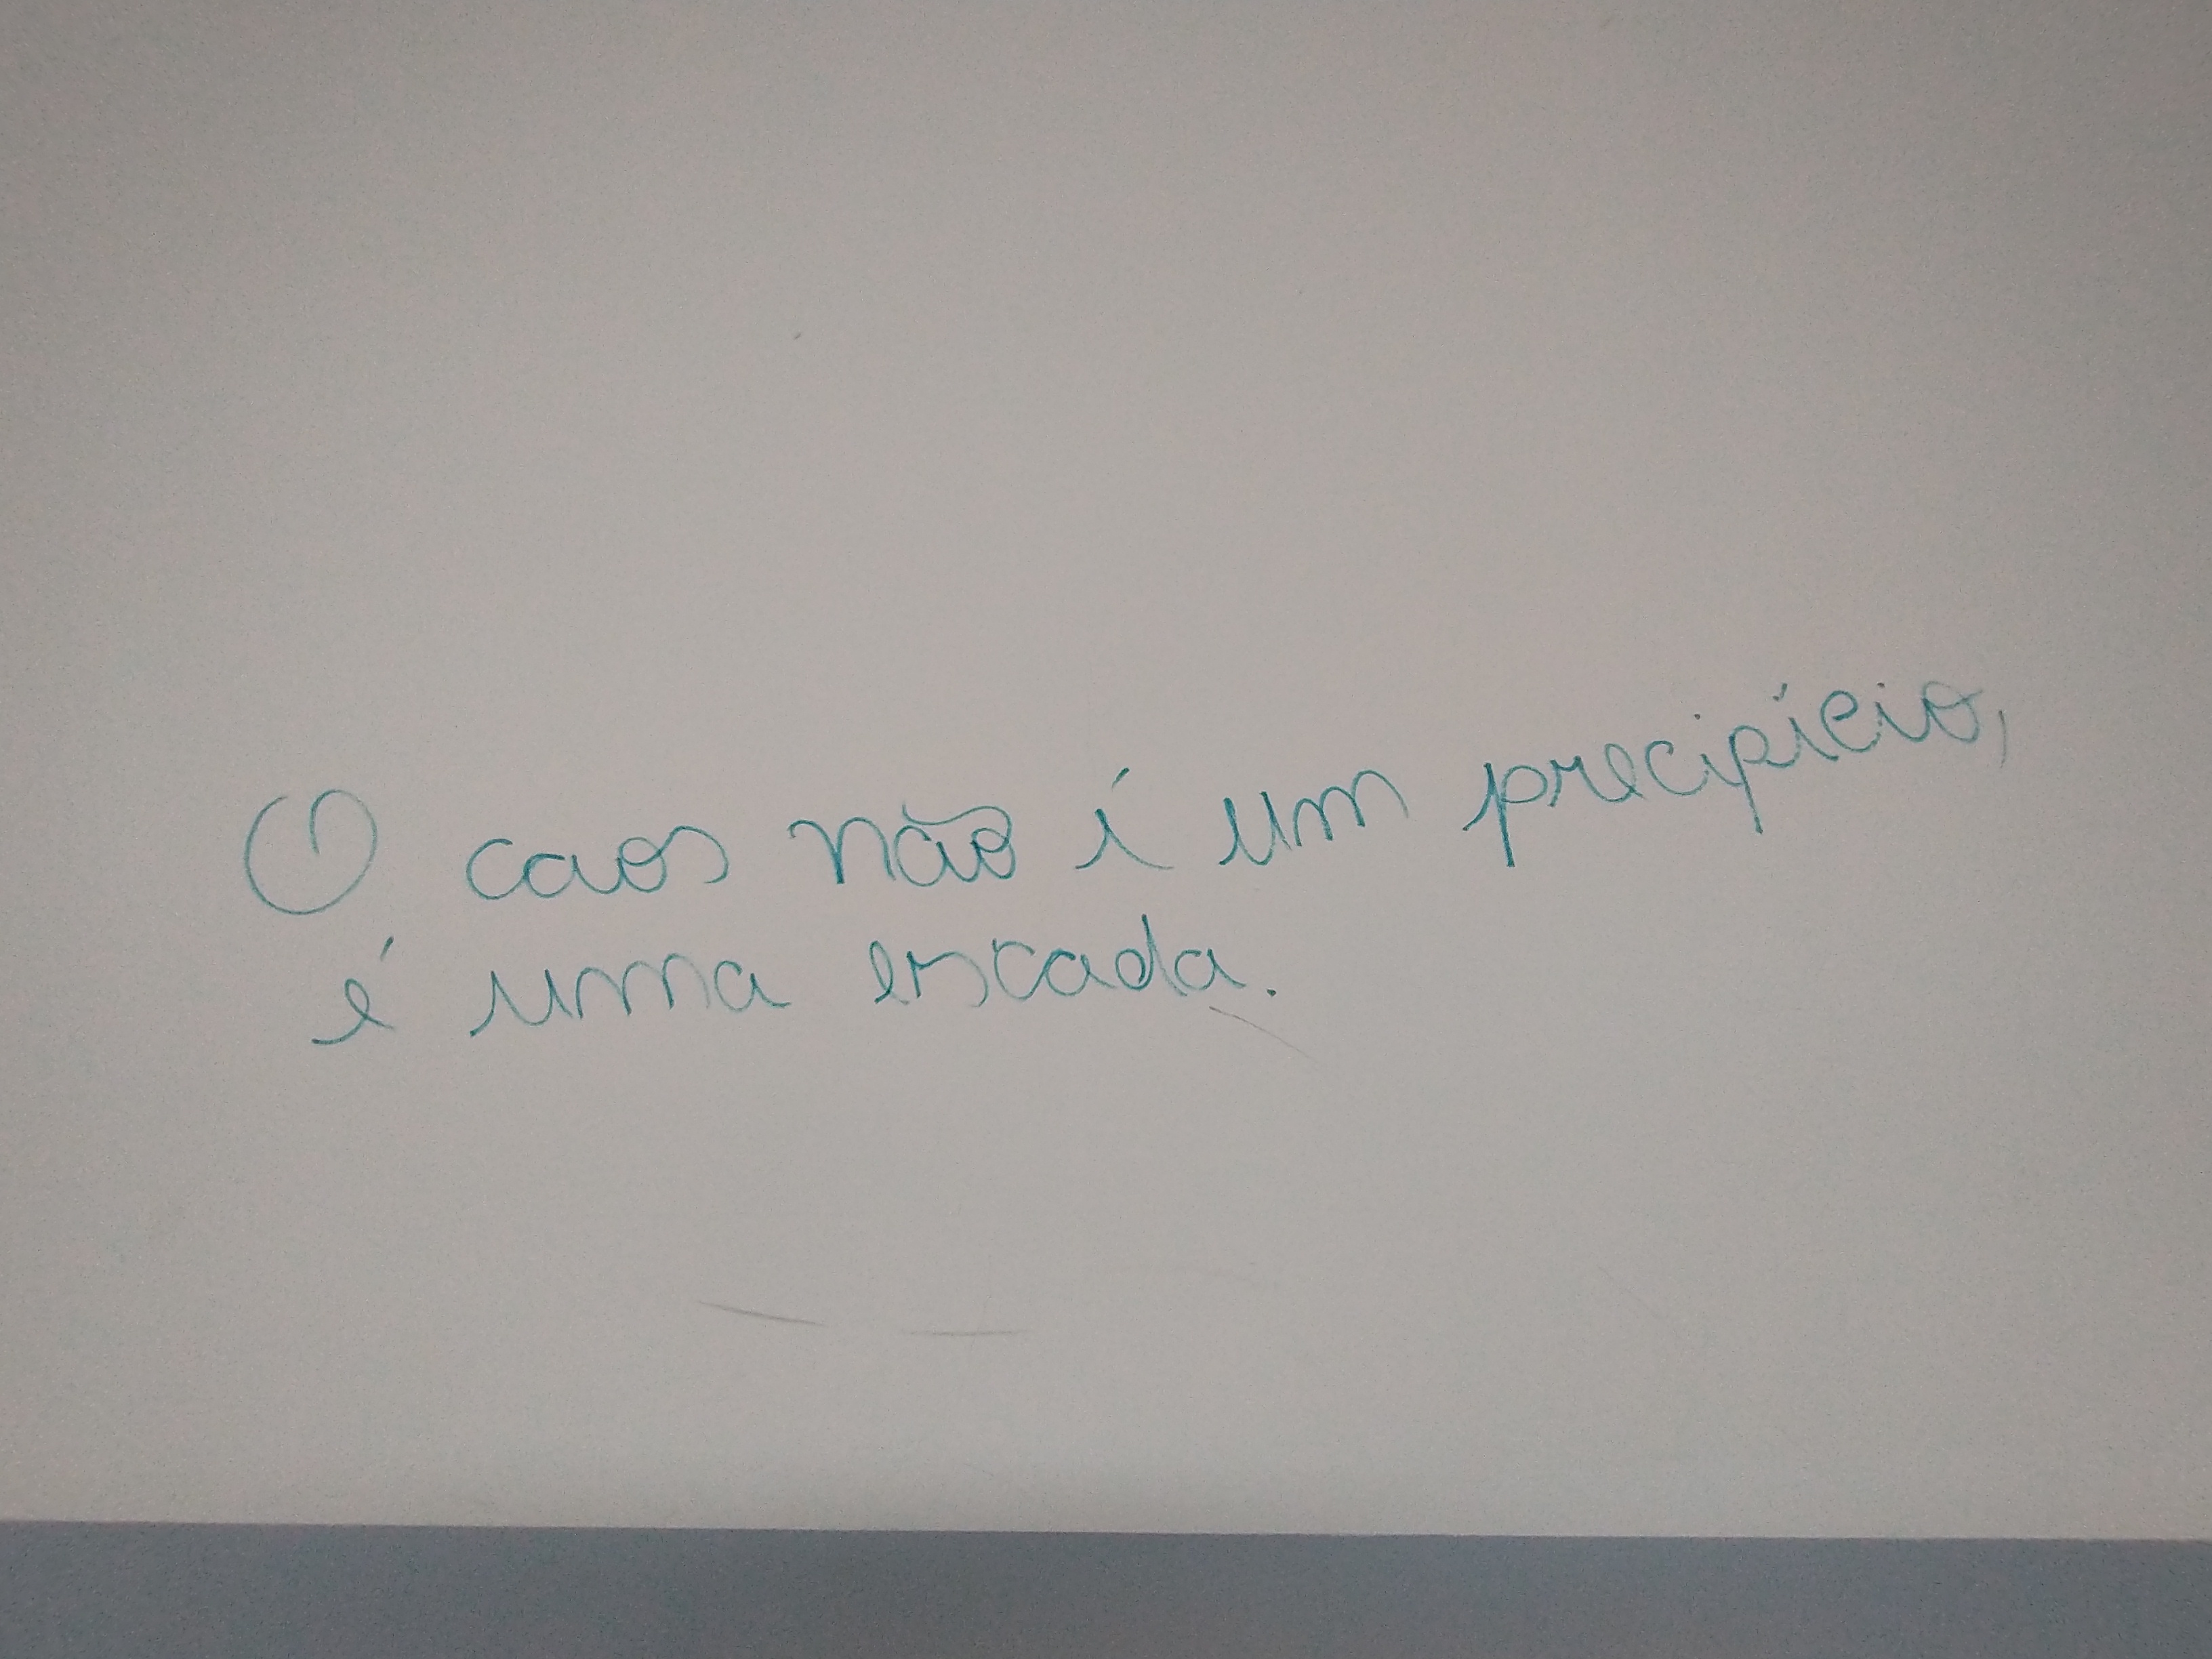 O caos não é um precipício,
é uma escada.